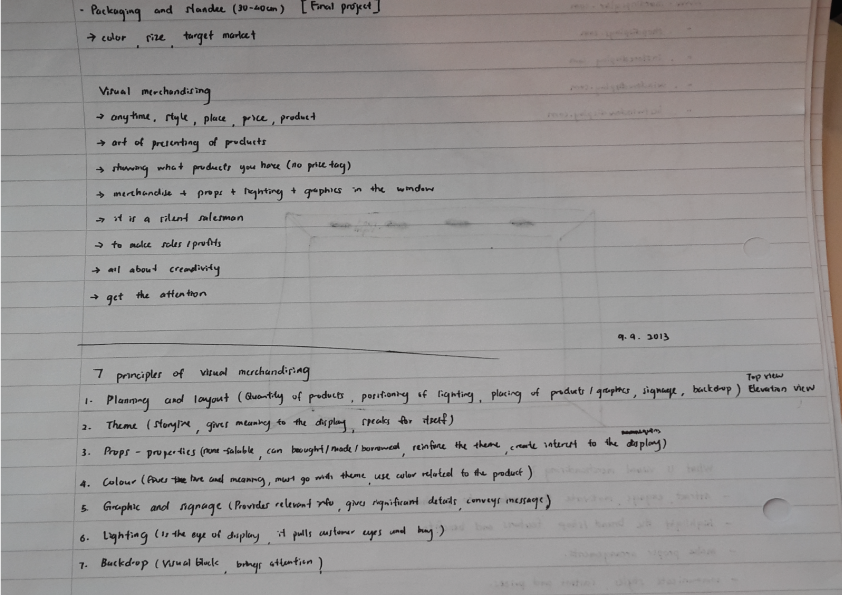 - Packaging and standee (30-40cm) [Final project]
→ color, size, target market
Visual merchandising
→ anytime, style, place, price, product
→ art of presenting of products
→ showing what products you have (no price tag)
→ merchandise + props + lighting + graphics in the window
→ it is a silent salesman
→ to make sales / profits
→ all about creativity
→ get the attention
9.9.2013
7 principles of visual merchandising
1. Planning and layout (Quantity of products, positioning of lighting, placing of products / graphics, signage, backdrop) Top view Elevation view
2. Theme (Storyline, gives meaning to the display, speaks for itself)
3. Props - properties (none-salable, can bought/made/borrowed, reinforce the theme, create interest to the display)
4. Colour (Gives the live and meaning, must go with theme, use color related to the product)
5. Graphic and signage (Provides relevant info, gives significant details, conveys message)
6. Lighting (Is the eye of display, it pulls customer eyes and buy)
7. Backdrop (Visual block, brings attention)